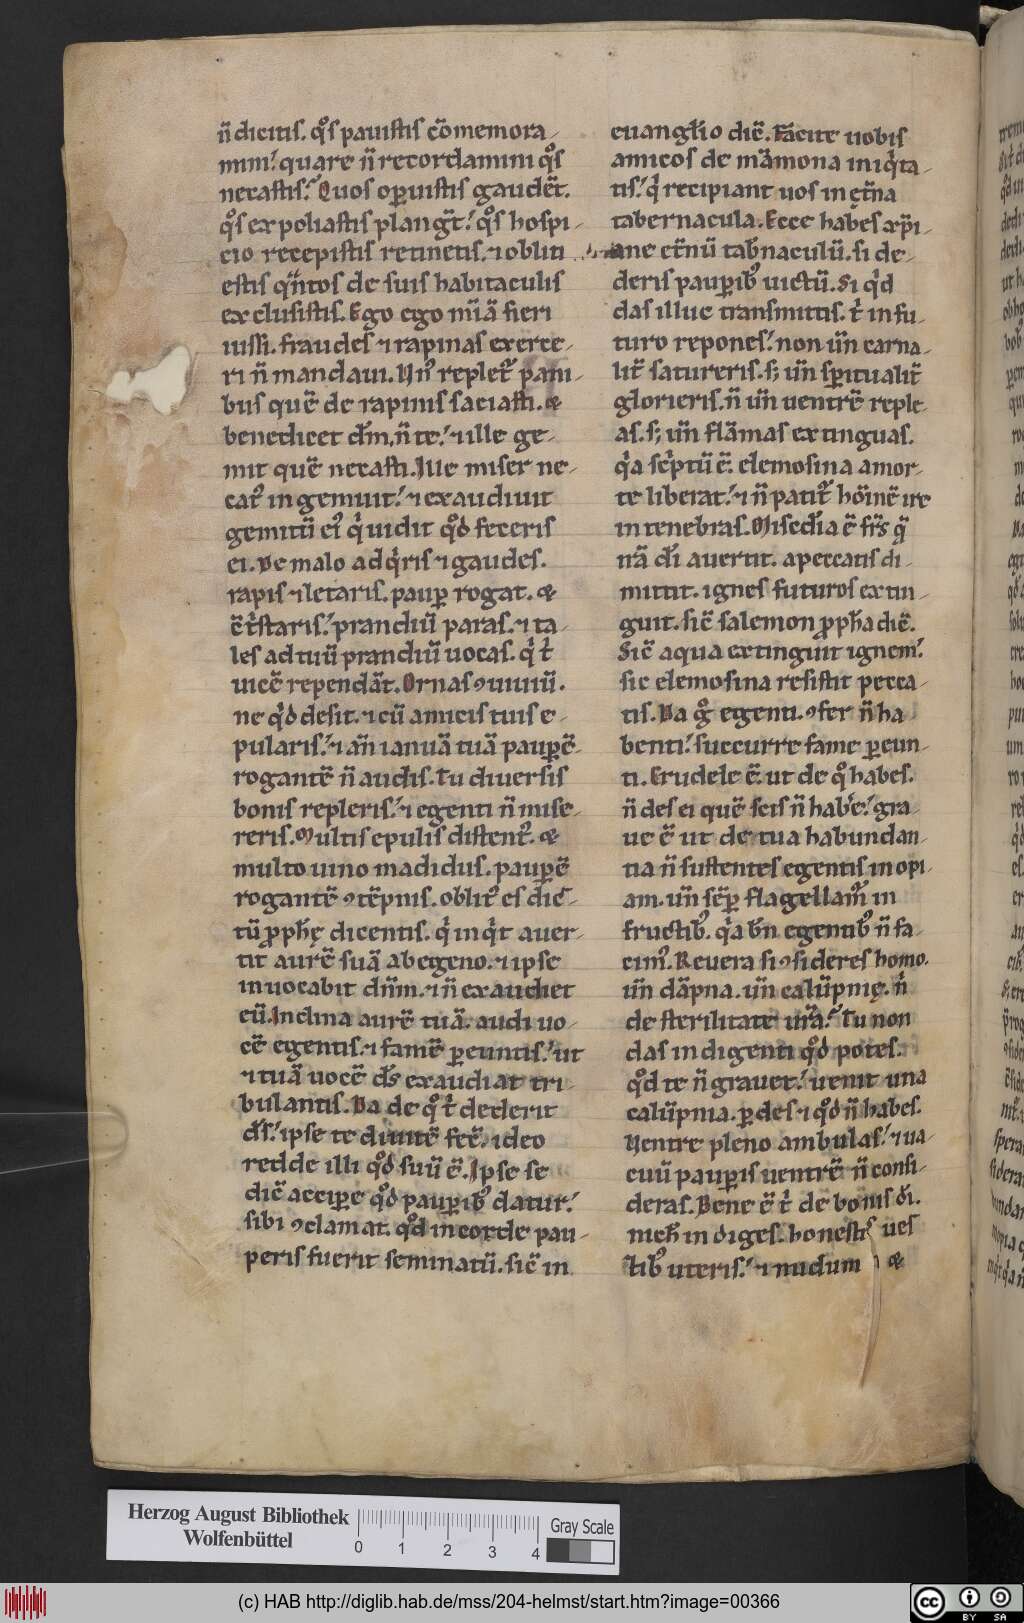 n̄ dicitis. q°s pauistis cōmemora-
mini. quare n̄ recordamini q°s
necastis. Quos oꝑuistis gaudēt.
q°s expoliastis plangūt. q°s hospi-
cio recepistis retinetis. ⁊ obliti
estis q̄ntos de suis habitaculis
exclusistis. Ego ego mīa fieri
iussi. fraudes ⁊ rapinas exerce-
ri n̄ mandaui. replet᷒ pani-
bus quē de rapinis saciasti. &
benedicet dn̄m, n̄ te. ⁊ ille ge-
mit quē necasti. Ille miser ne-
cat᷒ ingemuit. ⁊ exaudiuit
gemitū ei᷒ q̇ uidit q°d feceris
ei. De malo adq̇ris ⁊ gaudes.
rapis ⁊ letaris. pauꝑ rogat. &
ꝯt̄staris. prandiū paras. ⁊ ta-
les ad tuū prandiū uocas. q̇ t̄
uicē rependāt. Ornas ꝯuiuiū.
ne q̇d desit. ⁊ cū amicis tuis e-
pularis. ⁊ an̄ ianuā tuā pauꝑē
rogantē n̄ audis. Tu diuersis
bonis repleris. ⁊ egenti n̄ mise-
reris. Multis epulis distent᷒. &
multo uino madidus. pauꝑē
rogantē ꝯtēpnis. oblit᷒ es dic-
tū ꝓph̄ę dicentis. q̇ inq̇t auer-
tit aurē suā ab egeno. ⁊ ipse
inuocabit dn̄m. ⁊ n̄ exaudiet
eū. Inclina aurē tuā. audi uo-
cē egentis. ⁊ famē ꝑeuntis. ut
⁊ tuā uocē ds̄ exaudiat tri-
bulantis. Da de q° t̄ dederit
ds̄. ipse te diuitē fec̄. ideo
redde illi q°d suū ē. Ipse se
dic̄ acciꝑe q°d pauꝑib᷒ datur.
sibi ꝯclamat. q°d in corde pau-
peris fuerit seminatū. sic̄ in
euangl̄io dic̄. Facite uobis
amicos de māmona iniq̇ta-
tis. q̇ recipiant uos in et̄na
tabernacula. Ecce habes xp̄i-
ane et̄nū tab̄naculū. si de-
deris pauꝑib᷒ uictū. Si q̇d
das illuc transmittis. t̄ in fu-
turo repones. non un̄ carna-
lit̄ satureris. s; un̄ sꝑitualit̄
glorieris. n̄ un̄ uentrē reple-
as. s; un̄ flāmas extinguas.
q̇a sc̄ptū ē. elemosina a mor-
te liberat. ⁊ n̄ patit᷒ hōinē ire
in tenebras. Misedia ē frs̄ q̄
irā dī auertit. a peccatis di-
mittit. ignes futuros extin-
guit. sic̄ salemon ꝓph̄a dic̄.
Sic̄ aqua extinguit ignem.
sic elemosina resistit pecca-
tis. Da g° egenti. ꝯfer n̄ ha-
benti. succurre fame ꝑeun-
ti. Crudele ē. ut de q° habes.
n̄ des ei quē scis n̄ hab̄e. gra-
ue ē ut de tua habundan-
tia n̄ sustentes egentis inopi-
am. un̄ sēꝑ flagellam᷒ in
fructib᷒. q̇a bn̄ egentib᷒ n̄ fa-
cim᷒. Reuera si ꝯsideres homo.
un̄ dāpna. un̄ calūpnię. n̄
de sterilitate ur̄a. Tu non
das indigenti q°d potes.
q°d te n̄ grauet. uenit una
calūpnia. ꝑdes ⁊ q°d n̄ habes.
Uentre pleno ambulas. ⁊ ua-
cuū pauꝑis uentrē n̄ consi-
deras. Bene ē t̄ de bonis dī.
nich̄ indiges. honestis ues
tib᷒ uteris. ⁊ nudum &
Herzog August Bibliothek
Wolfenbüttel
0 1 2 3 4
Gray Scale
(c) HAB http://diglib.hab.de/mss/204-helmst/start.htm?image=00366
cc BY SA